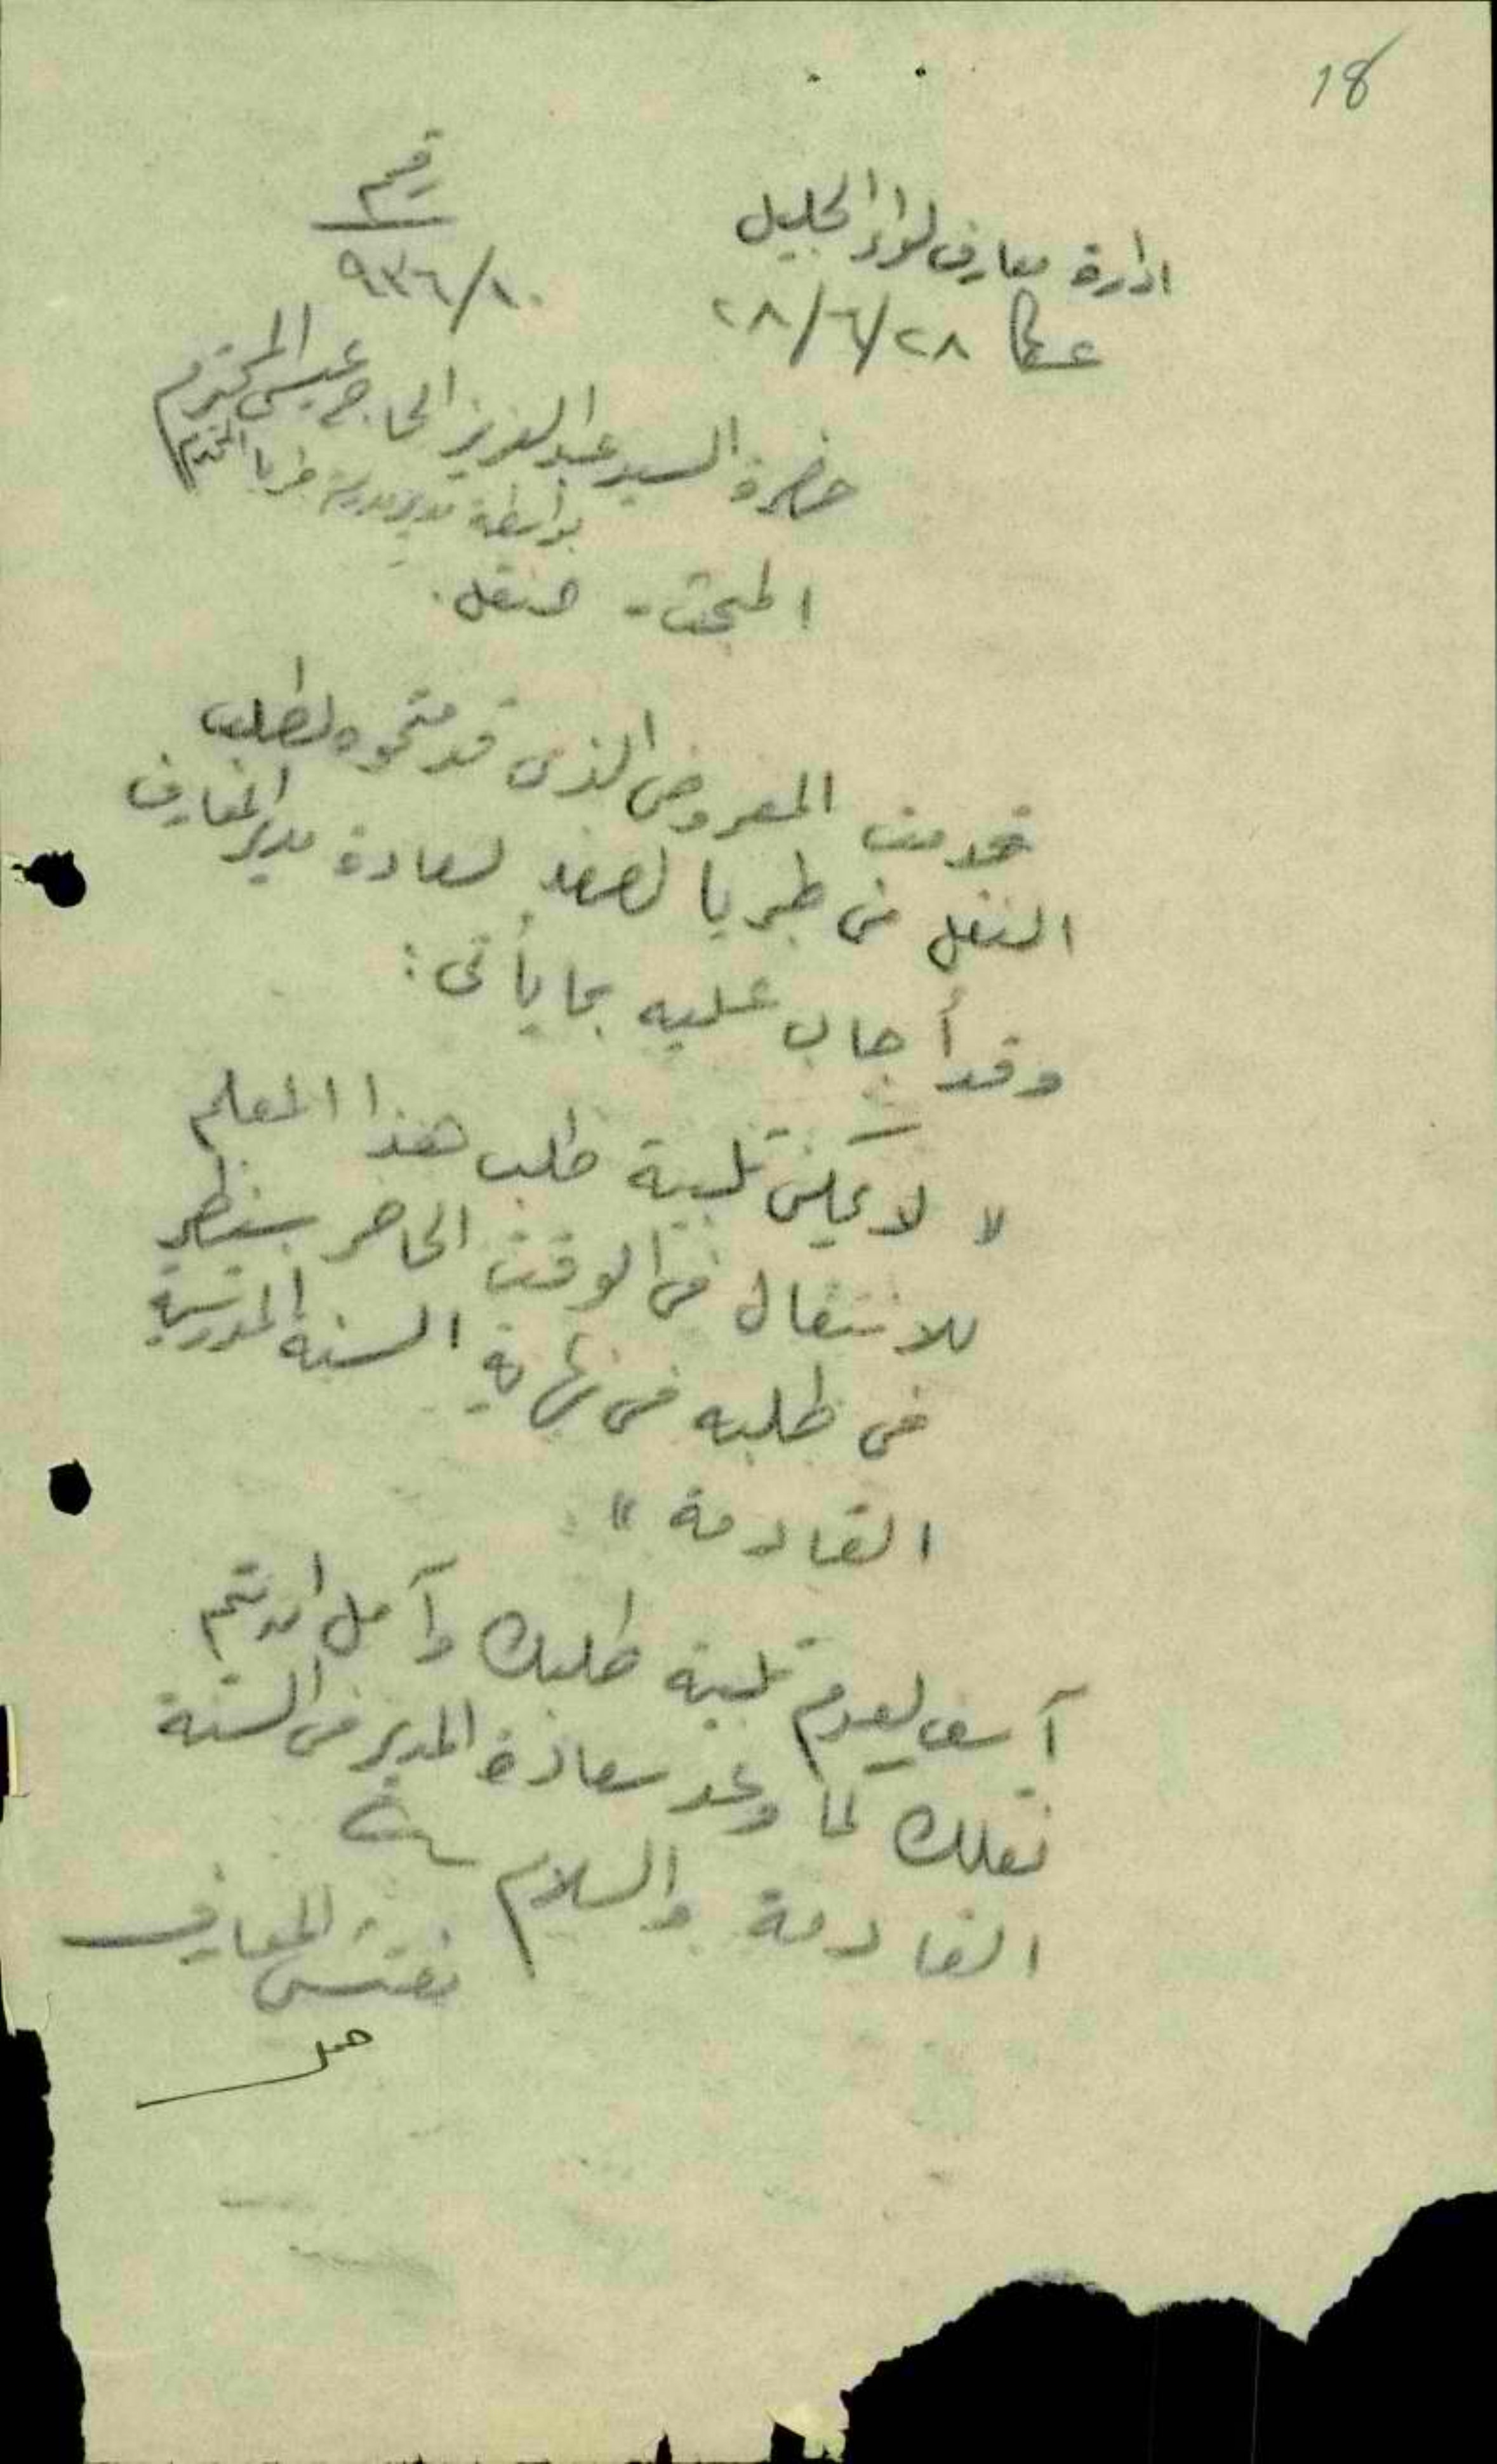 18
ادارة معارف لواء الجليل
رقم
عكا ٢٨/٦/٢٨
٩٣٦/١٠
حضرة السيد عبد العزيز الحاج عيسى المحترم
بواسطة مدير مدرسة طبريا المحترم
المبحث - النقل .
قدمت المعروض الذى قدمتموه لطلب
النقل من طبريا لصفد لسعادة مدير المعارف
وقد أجاب عليه بما يأتى :
" لا يمكن تلبية طلب هذا المعلم
للانتقال فى الوقت الحاضر سينظر
فى طلبه فى نهاية السنة المدرسية
القادمة "
آسف لعدم تلبية طلبك وآمل ان يتم
نقلك كما وعد سعادة المدير فى السنة
القادمة والسلام
مفتش المعارف